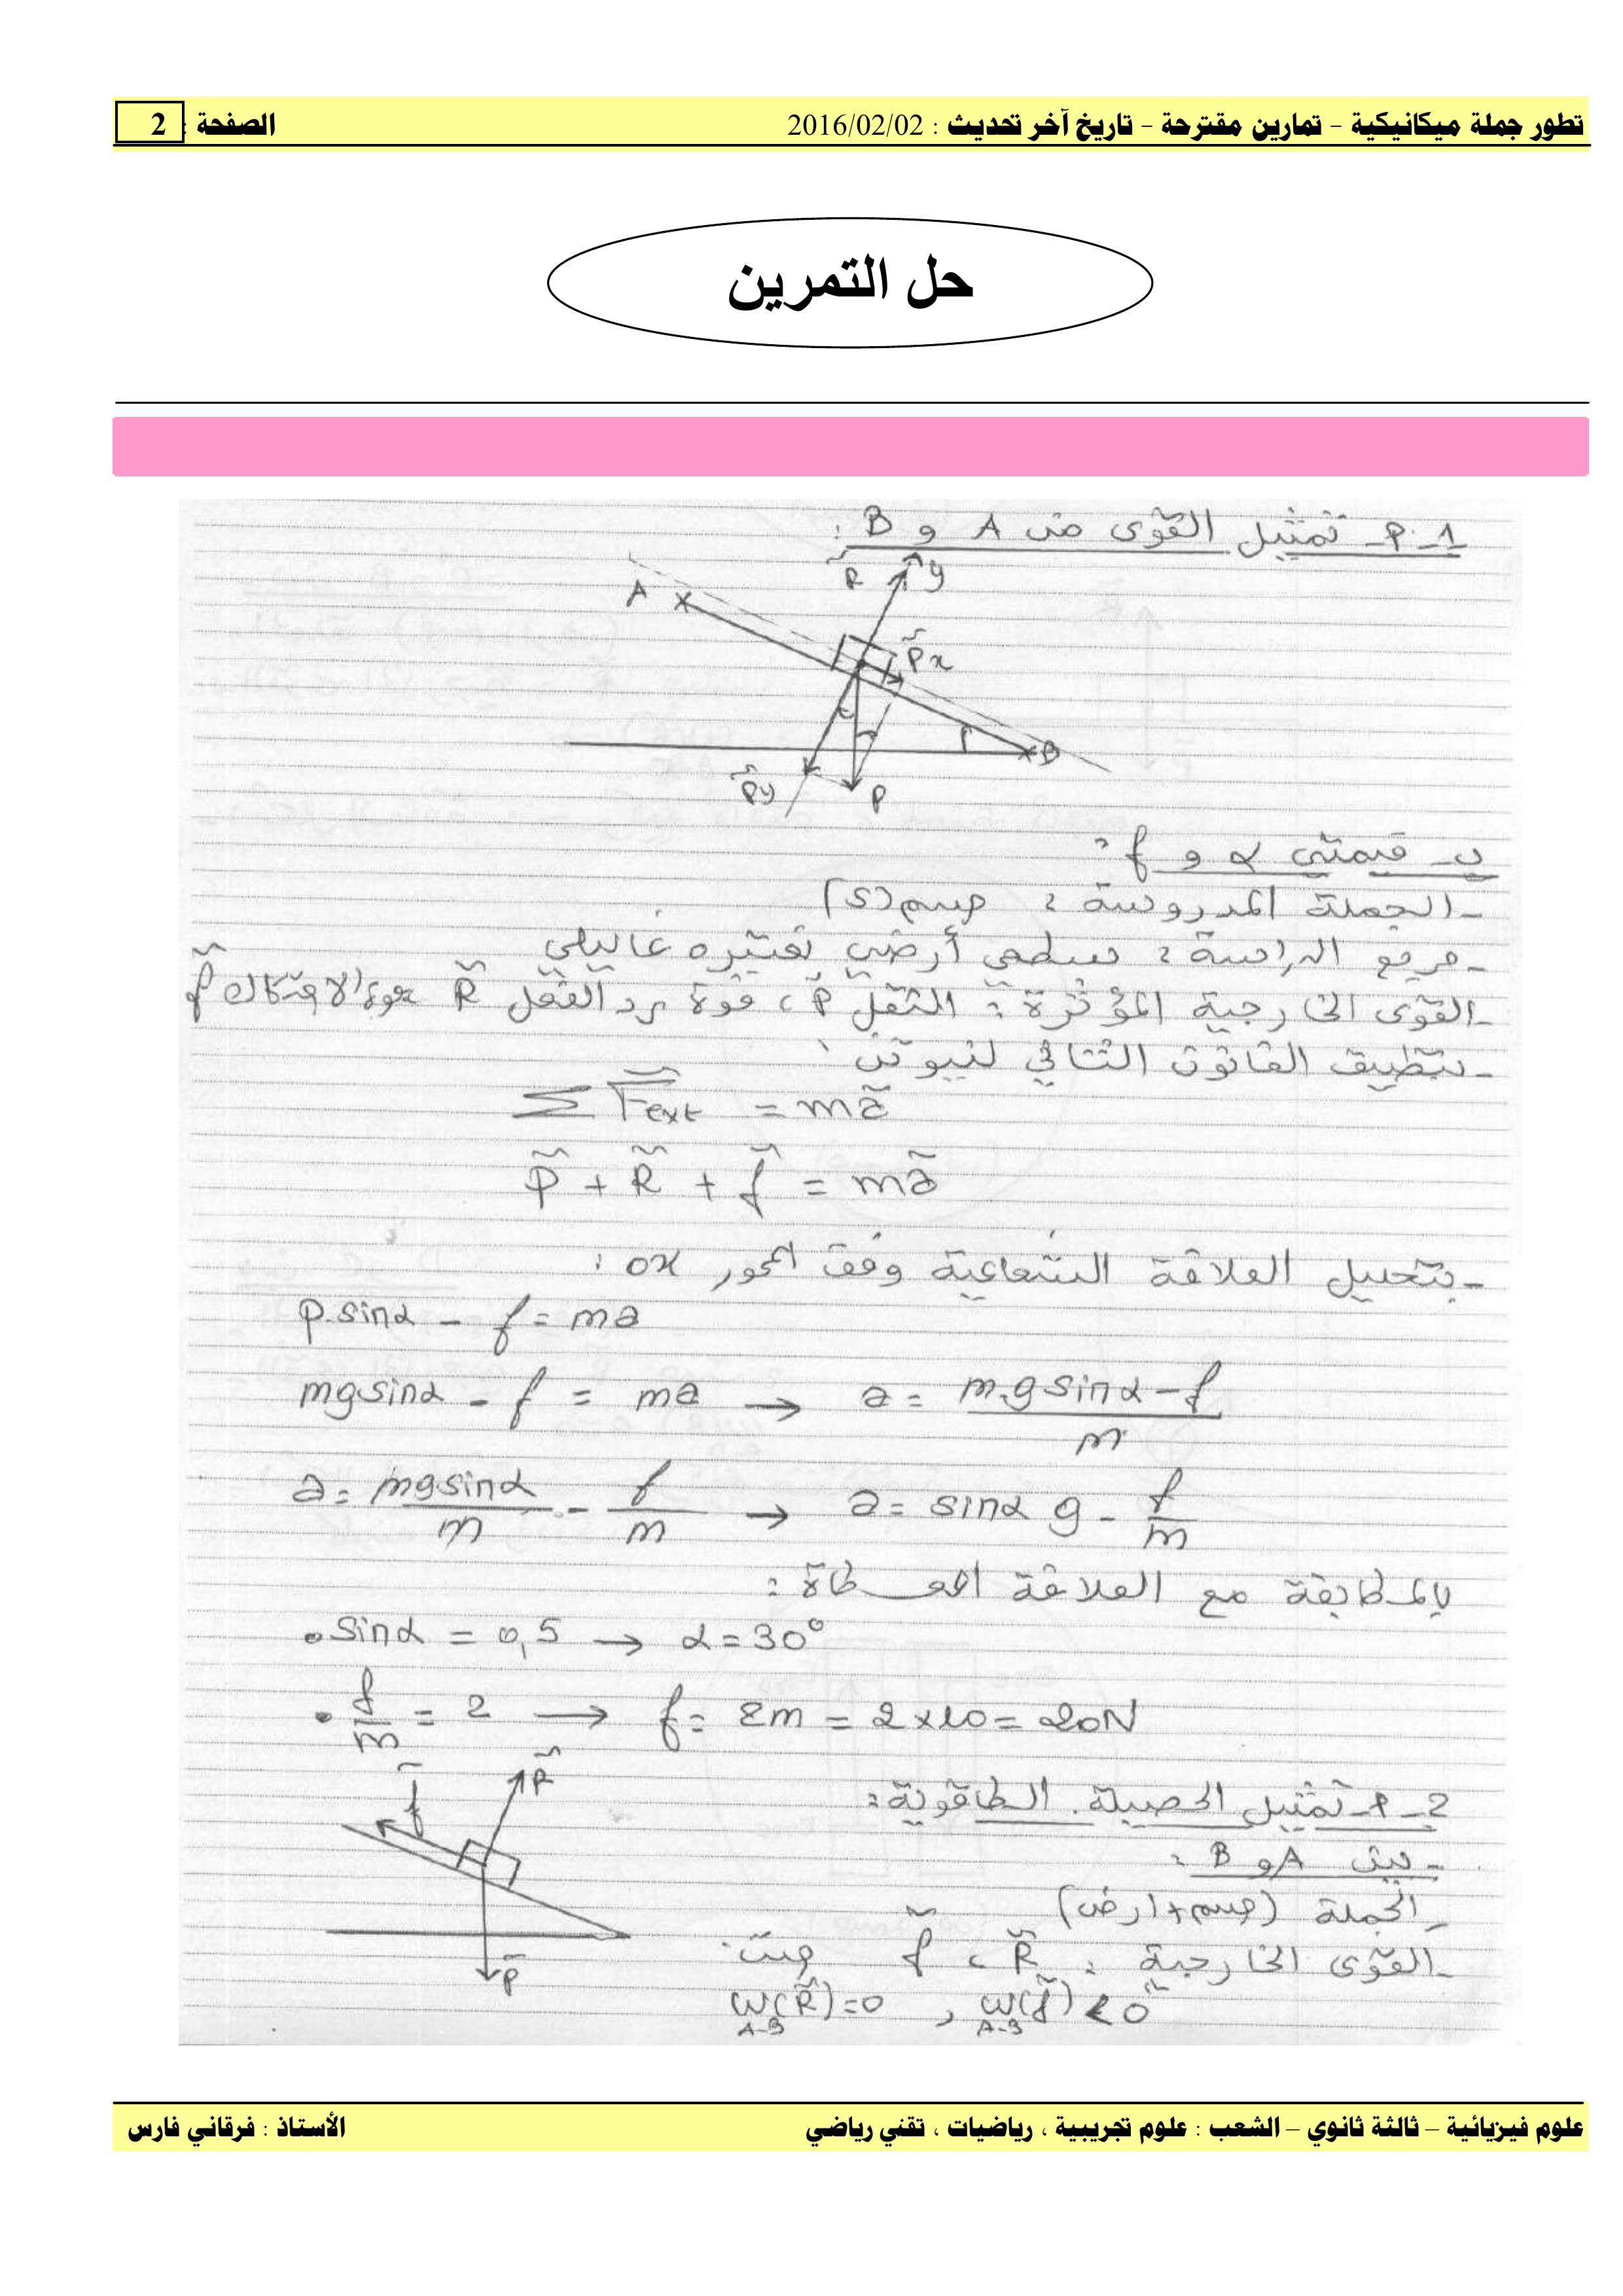 تطور جملة ميكانيكية – تمارين مقترحة – تاريخ آخر تحديث : 2016/02/02 الصفحة : 2
حل التمرين
1-أ- تمثيل القوى من A و B :
R y
A
Px
B
Py P
ب- قيمتي α و f :
- الجملة المدروسة : جسم (S)
- مرجع الدراسة : سطحي أرضي نعتبره غاليلي
- القوى الخارجية المؤثرة : الثقل P ، قوة رد الفعل R قوة الاحتكاك f
- بتطبيق القانون الثاني لنيوتن :
Σ Fext = ma
P + R + f = ma
- بتحليل العلاقة الشعاعية وفق المحور ox :
p.sinα - f = ma
mgsinα - f = ma → a = m.gsinα - f / m
a = mgsinα / m - f / m → a = sinα g - f / m
بالمطابقة مع العلاقة المعطاة :
• sinα = 0,5 → α = 30°
• f / m = 2 → f = 2m = 2 x 10 = 20N
2-أ- تمثيل الحصيلة الطاقوية :
f R
P
- بين A و B :
- الجملة (جسم + ارض)
- القوى الخارجية : R ، f حيث
W(R) = 0 , W(f) < 0
A-B A-B
علوم فيزيائية – ثالثة ثانوي – الشعب : علوم تجريبية ، رياضيات ، تقني رياضي الأستاذ : فرقاني فارس